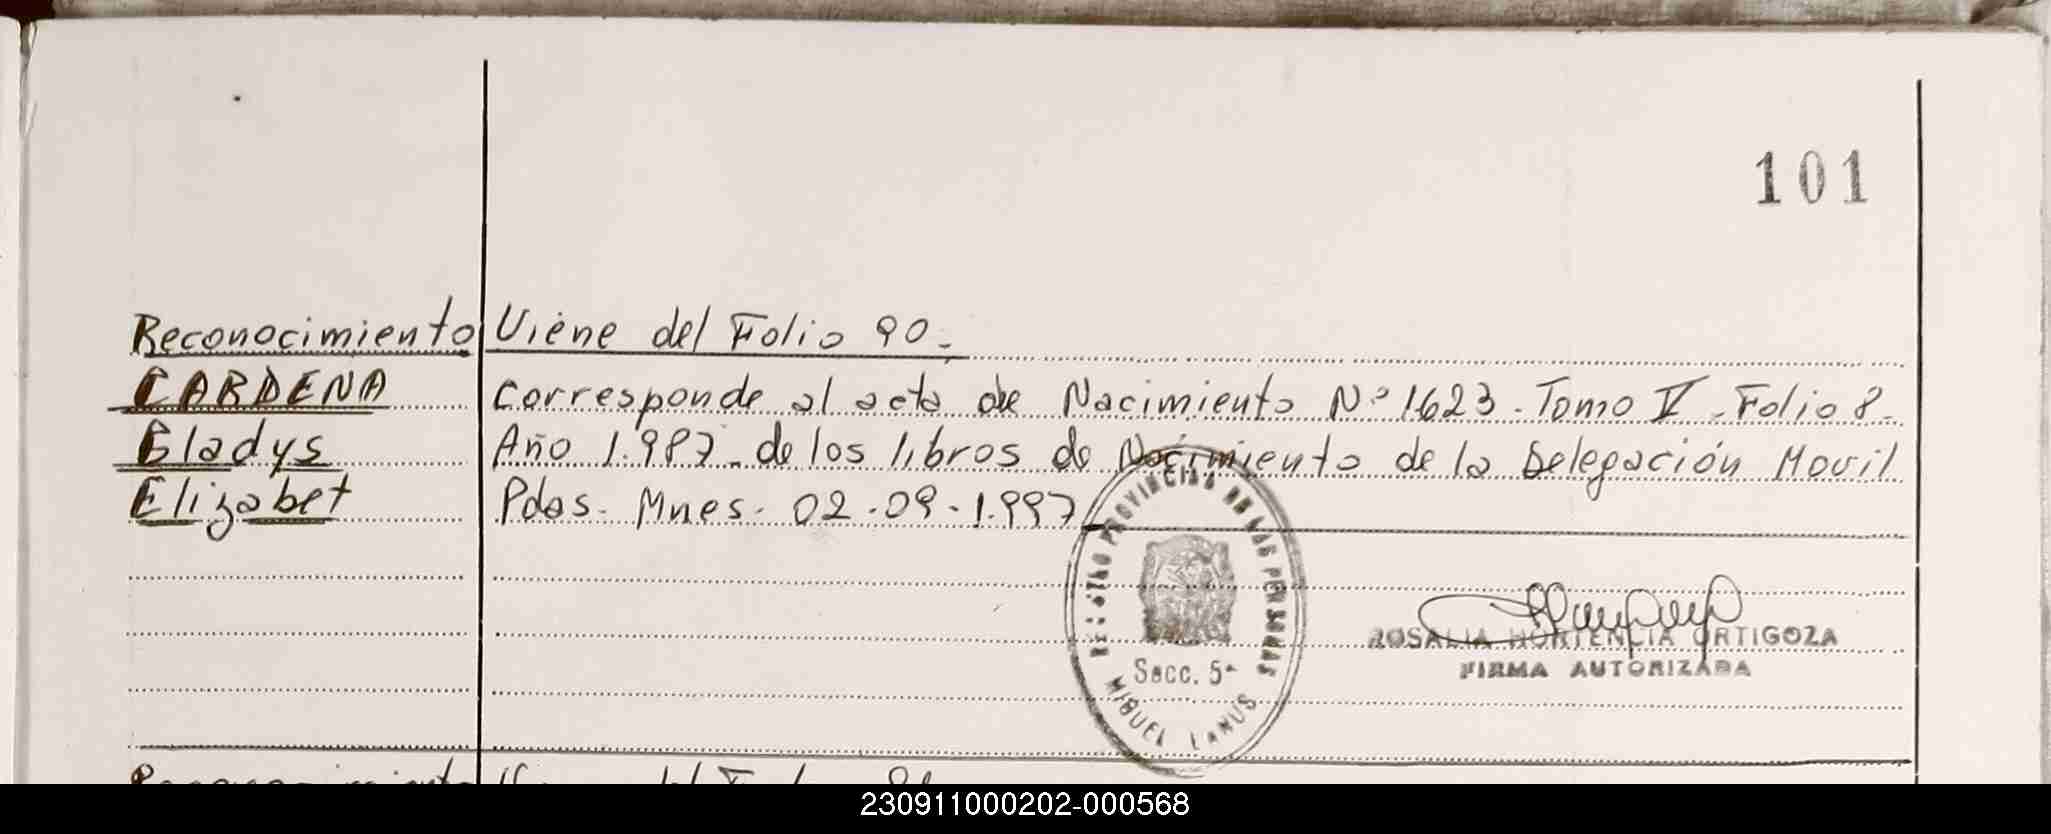 101
Reconocimiento Viene del Folio 90.
CARDENA Corresponde al acta de Nacimiento Nº 1623. Tomo V. Folio 8.
Gladys Año 1.987. de los libros de Nacimiento de la Delegación Movil
Elizabet Pdas. Mnes. 02.09.1.997
REGISTRO PROVINCIAL DE LAS PERSONAS
Secc. 5ª
MIGUEL LANUS
ROSALIA HORTENCIA ORTIGOZA
FIRMA AUTORIZADA
230911000202-000568